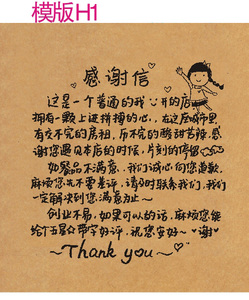 模版H1
感谢信
这是一个普通的我开的店
拥有一颗上进拼搏的心，在这座城市里
有交不完的房租，历不完的酸甜苦辣。感
谢您遇见本店的时候，片刻的停留
如餐品不满意，我们诚心向您道歉，
麻烦您先不要差评，请及时联系我们，我们
一定解决到您满意为止～
创业不易，如果可以的话，麻烦您能
给个五星☆带字好评，祝您安好～谢
～Thank you～